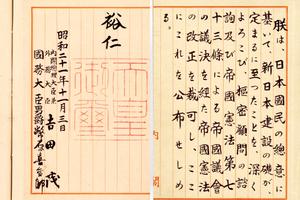 朕は、日本國民の總意に
基いて、新日本建設の礎が、
定まるに至つたことを、深く
よろこび、樞密顧問の諮
詢及び帝國憲法第七
十三條による帝國議會
の議決を經た帝國憲法
の改正を裁可し、ここ
にこれを公布せしめ
内閣
裕仁
天皇御璽
昭和二十一年十一月三日
内閣總理大臣兼
外務大臣
吉田茂
國務大臣 男爵 幣原喜重郎